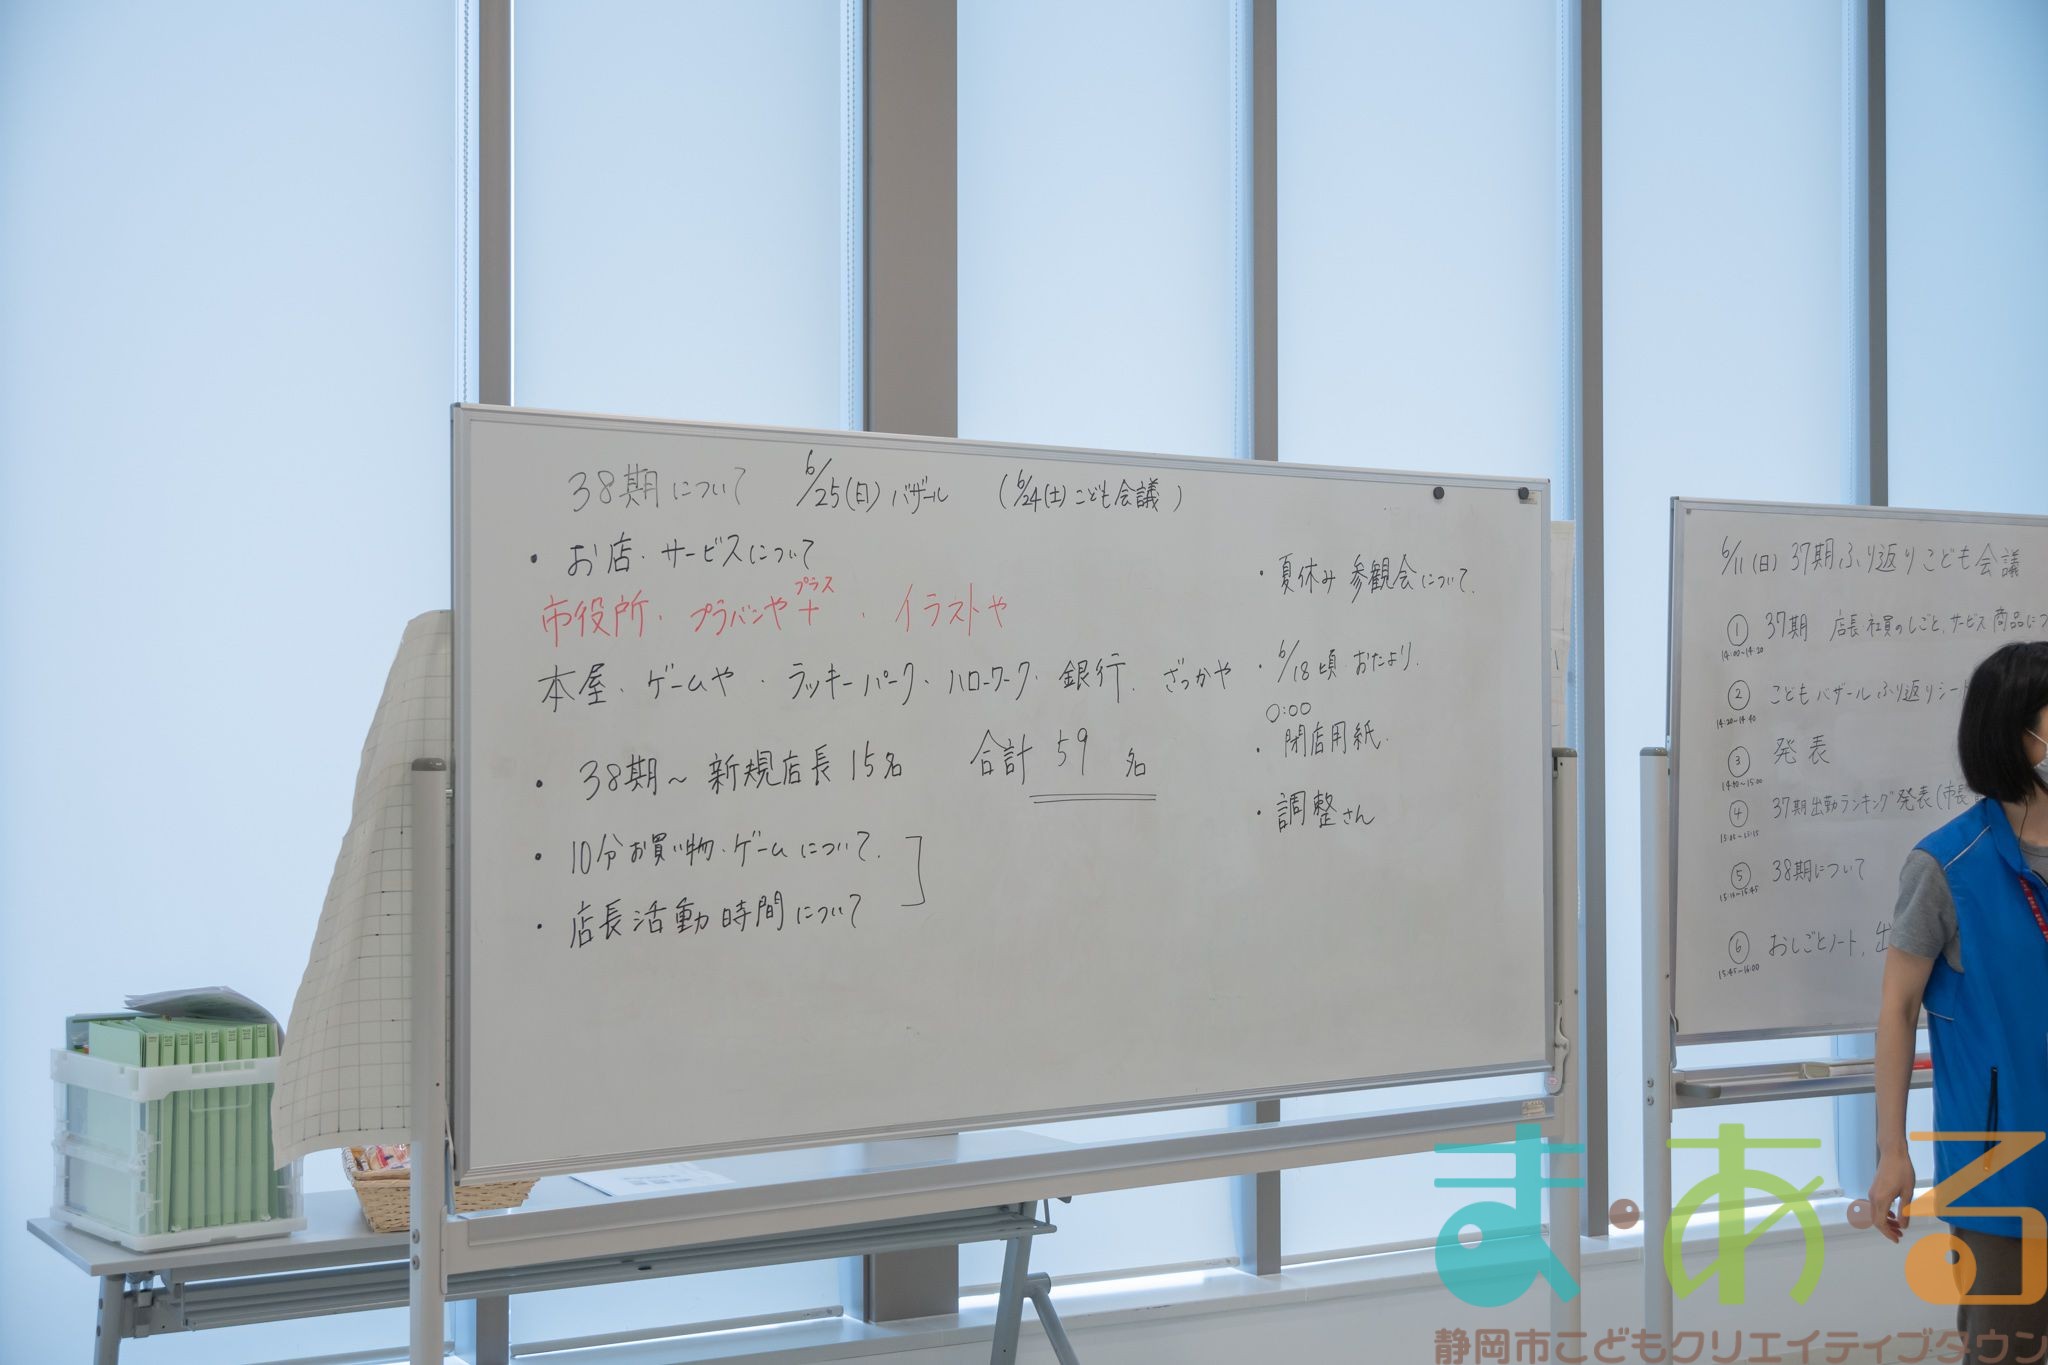 38期について 6/25(日)バザール (6/24(土)こども会議)
・お店・サービスについて
プラス
市役所・プラバンや+・イラストや
本屋・ゲームや・ラッキーパーク・ハローワーク・銀行・ざっかや
・38期～新規店長15名 合計59名
・10分お買い物・ゲームについて.
・店長活動時間について
・夏休み参観会について.
・6/18頃・おたより.
0:00
・閉店用紙.
・調整さん
6/11(日)37期ふり返りこども会議
① 37期 店長社員のしごと、サービス商品につ
14:00~14:20
② こどもバザールふり返りシート
14:20~14:40
③ 発表
14:40~15:00
④ 37期出勤ランキング発表(市長
15:05~15:15
⑤ 38期について
15:15~15:45
⑥ おしごとノート,出
15:45~16:00
ま・あ・る
静岡市こどもクリエイティブタウン